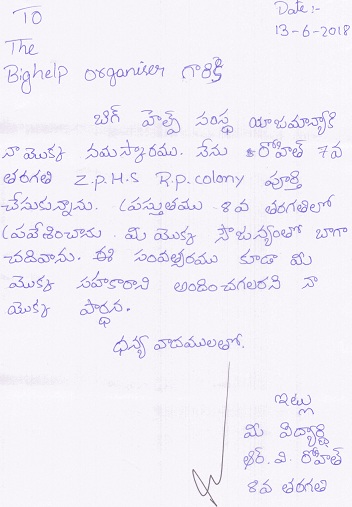 TO
Date:-
13-6-2018
The
Bighelp organiser గారికి
బిగ్ హెల్ప్ సంస్థ యాజమాన్యానికి
నా యొక్క నమస్కారము. నేను రోహిత్ 7వ
తరగతి Z.P.H.S R.P.colony పూర్తి
చేసుకున్నాను. ప్రస్తుతము 8వ తరగతిలో
ప్రవేశించాను. మీ యొక్క సౌజన్యంతో బాగా
చదివాను. ఈ సంవత్సరము కూడా మీ
యొక్క సహకారాన్ని అందించగలరని నా
యొక్క ప్రార్థన.
ధన్య వాదములతో.
ఇట్లు
మీ విద్యార్థి
ఆర్. వి. రోహిత్
8వ తరగతి